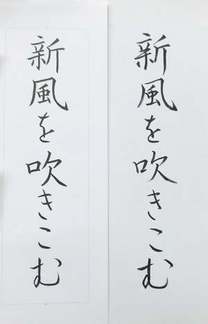 新風を吹きこむ
新風を吹きこむ